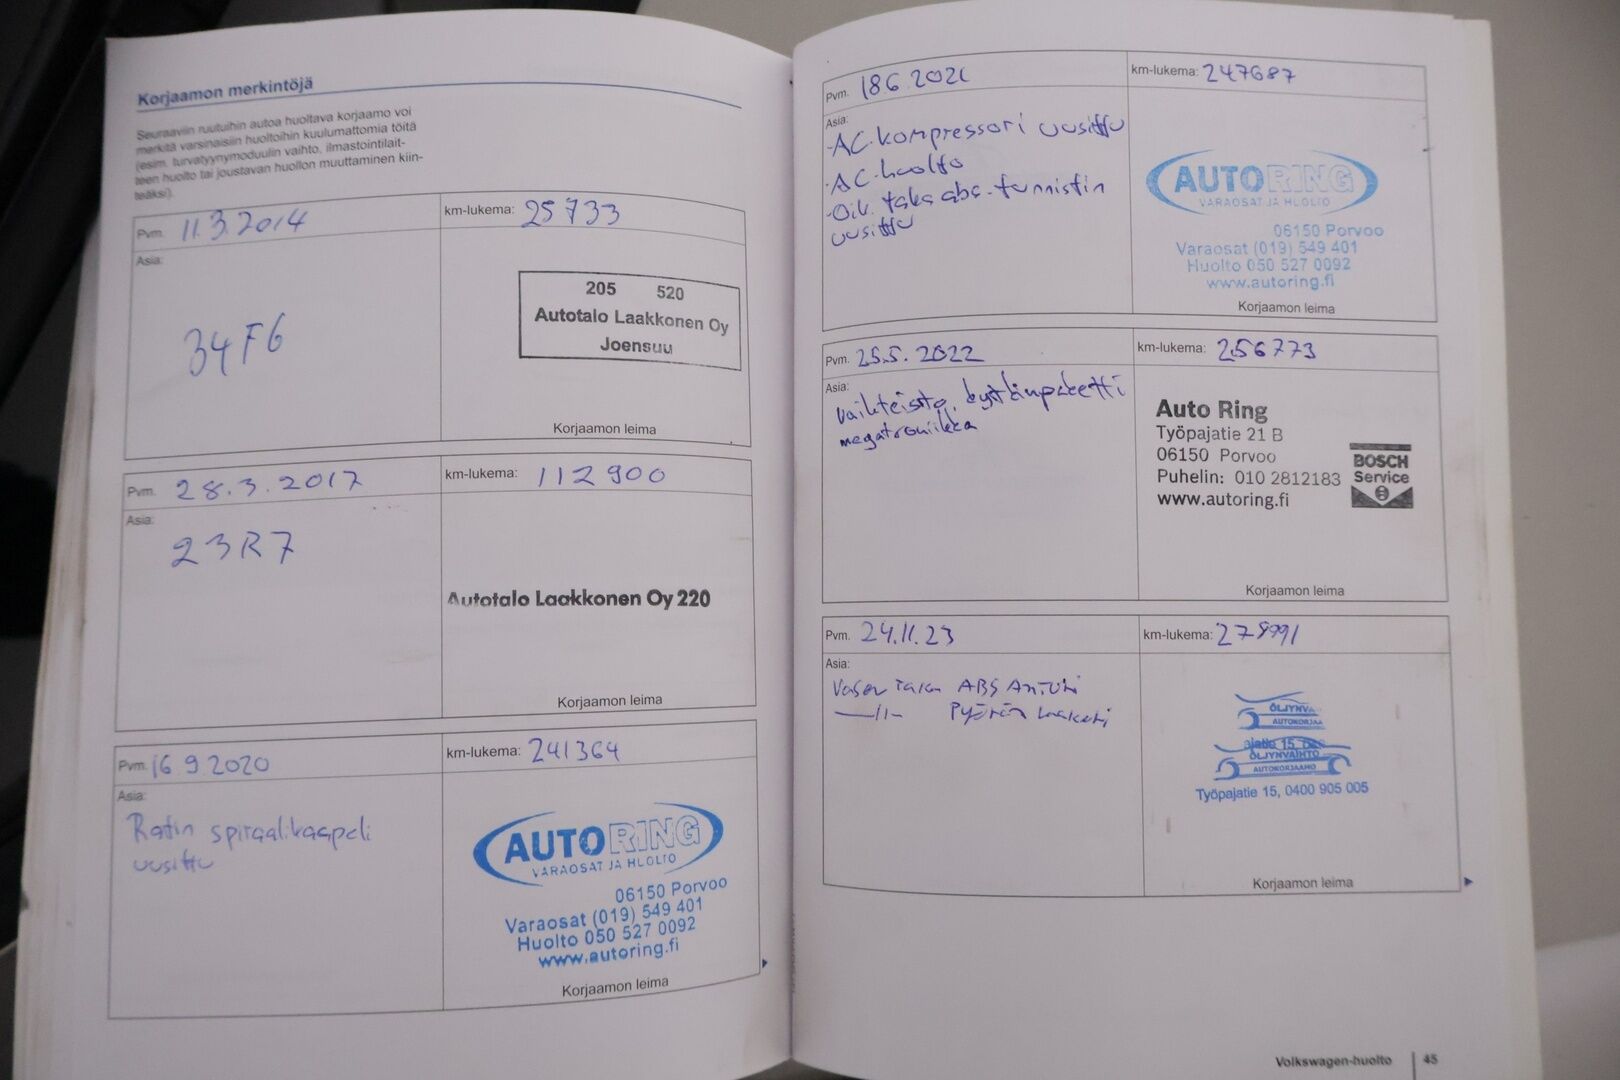 Korjaamon merkintöjä
Seuraaviin ruutuihin autoa huoltava korjaamo voi
merkitä varsinaisiin huoltoihin kuulumattomia töitä
(esim. turvatyynymoduulin vaihto, ilmastointilait-
teen huolto tai joustavan huollon muuttaminen kiin-
teäksi).
Pvm. 11.3.2014
km-lukema: 25733
Asia:
34F6
205 520
Autotalo Laakkonen Oy
Joensuu
Korjaamon leima
Pvm. 28.3.2017
km-lukema: 112900
Asia:
23R7
Autotalo Laakkonen Oy 220
Korjaamon leima
Pvm. 16 9.2020
km-lukema: 241364
Asia:
Ratin spiraalikaapeli
uusittu
AUTORING
VARAOSAT JA HUOLTO
06150 Porvoo
Varaosat (019) 549 401
Huolto 050 527 0092
www.autoring.fi
Korjaamon leima
Pvm. 18.6.2021
km-lukema: 247687
Asia:
-AC-kompressori uusittu
-AC-huolto
-Oik. taka abs-tunnistin
uusittu
AUTORING
VARAOSAT JA HUOLTO
06150 Porvoo
Varaosat (019) 549 401
Huolto 050 527 0092
www.autoring.fi
Korjaamon leima
Pvm. 25.5.2022
km-lukema: 256773
Asia:
vaihteisto, kytkinpaketti
megatroniikka
Auto Ring
Työpajatie 21 B
06150 Porvoo
Puhelin: 010 2812183
www.autoring.fi
BOSCH
Service
Korjaamon leima
Pvm. 24.11.23
km-lukema:
Asia:
Vasen Taka ABS Anturi
—11— Pyörän Laakeri
ÖLJYNVA
AUTOKORJAA
ÖLJYNVAIHTO
AUTOKORJAAMO
Työpajatie 15, 0400 905 005
Korjaamon leima
Volkswagen-huolto 45